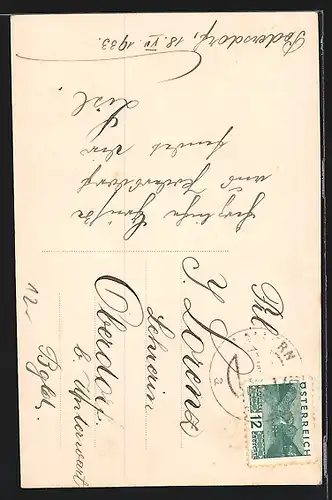 Podersdorf, 18. VII. 1933.
Herzliche Grüße
aus Podersdorf
sendet Dir
Lisl.
Frl.
J. Lorenz
Lehrerin
Oberdorf
b. Unterwart
Bgld.
12.-
ÖSTERREICH
12